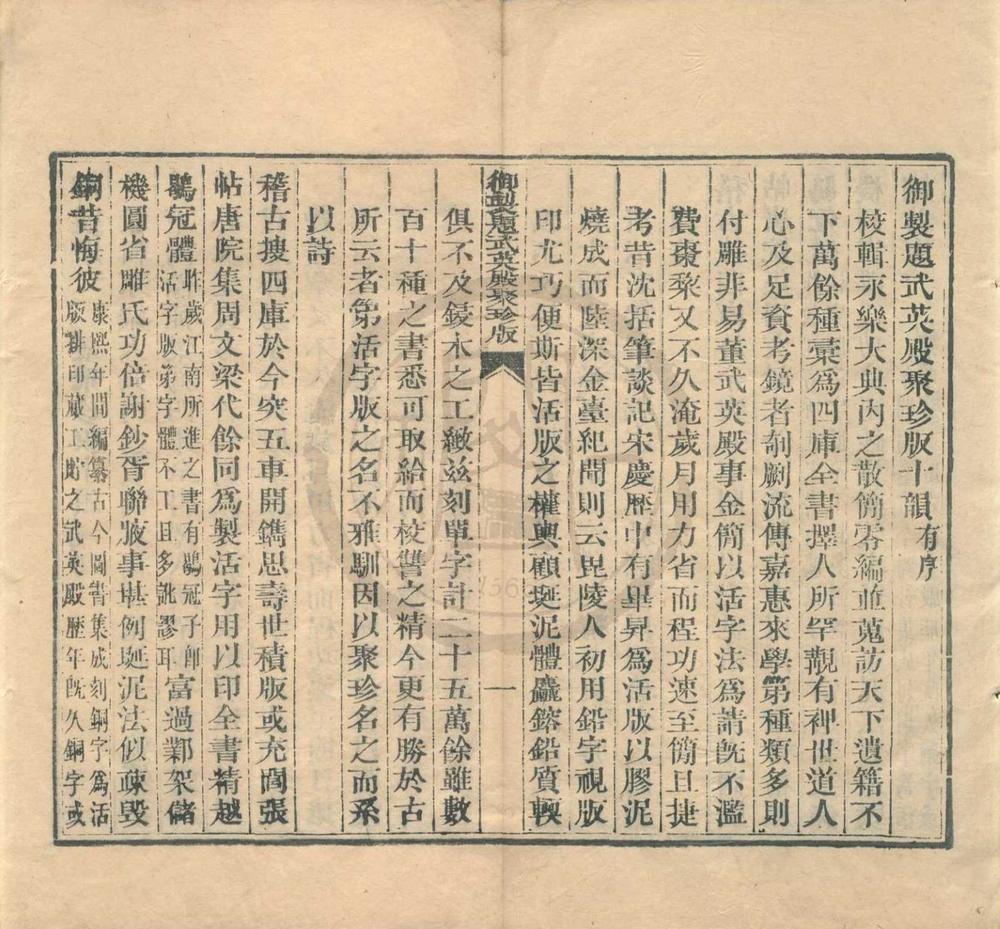 御製題武英殿聚珍版十韻有序
校輯永樂大典內之散簡零編並蒐訪天下遺籍不
下萬餘種彚爲四庫全書擇人所罕覯有裨世道人
心及足資考鏡者剞劂流傳嘉惠來學第種類多則
付雕非易董武英殿事金簡以活字法爲請既不濫
費棗棃又不久淹歲月用力省而程功速至簡且捷
考昔沈括筆談記宋慶歷中有畢昇爲活版以膠泥
燒成而陸深金臺紀聞則云毘陵人初用鉛字視版
印尤巧便斯皆活版之權輿顧埏泥體麤鎔鉛質輭
御製題武英殿聚珍版
一
俱不及鋟木之工緻茲刻單字計二十五萬餘雖數
百十種之書悉可取給而校讐之精今更有勝於古
所云者第活字版之名不雅馴因以聚珍名之而系
以詩
稽古搜四庫於今突五車開鐫思壽世積版或充閭張
帖唐院集周文梁代餘同爲製活字用以印全書精越
鶡冠體昨歲江南所進之書有鶡冠子卽
活字版第字體不工且多訛謬耳富過鄴架儲
機圓省雕氏功倍謝鈔胥聯腋事堪例埏泥法似疎毀
銅昔悔彼康熙年間編纂古今圖書集成刻銅字爲活
版排印蕆工貯之武英殿歷年既久銅字或